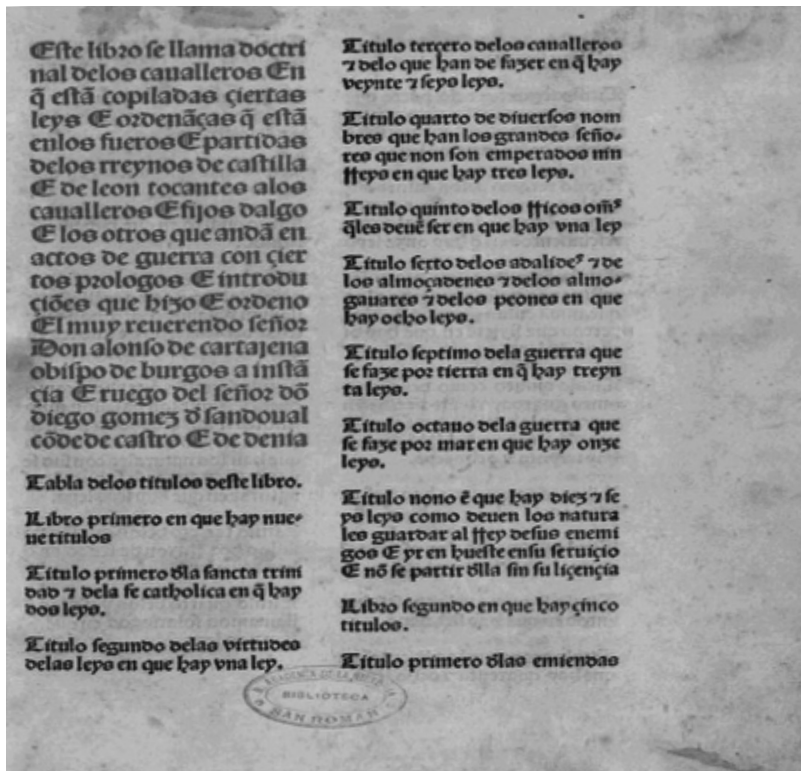 Este libro se llama doctri
nal delos caualleros En
q̃ estã copiladas çiertas
leys E ordenãças q̃ estã
enlos fueros E partidas
delos rreynos de castilla
E de leon tocantes alos
caualleros E fijos dalgo
E los otros que andã en
actos de guerra con çier
tos prologos E introdu
çiões que hizo E ordeno
El muy reuerendo señor
Don alonso de cartajena
obispo de burgos a instã
çia E ruego del señor dõ
diego gomez d̓ sandoual
cõde de castro E de denia
Tabla delos titulos deste libro.
Libro primero en que hay nue-
ue titulos
Titulo primero d̓la sancta trini
dad ⁊ dela fe catholica en q̃ hay
dos leys.
Titulo segundo delas virtudes
delas leys en que hay vna ley.
Titulo tercero delos caualleros
⁊ delo que han de fazer en q̃ hay
veynte ⁊ seys leys.
Titulo quarto de diuersos nom
bres que han los grandes seño-
res que non son emperados nin
Reys en que hay tres leys.
Titulo quinto delos Ricos omẽs
q̃les deuẽ ser en que hay vna ley
Titulo sexto delos adalides ⁊ de
los almoçadenes ⁊ delos almo-
gauares ⁊ delos peones en que
hay ocho leys.
Titulo septimo dela guerra que
se faze por tierra en q̃ hay treyn
ta leys.
Titulo octauo dela guerra que
se faze por mar en que hay onze
leys.
Titulo nono ẽ que hay diez ⁊ se
ys leys como deuen los natura
les guardar al Rey desus enemi
gos E yr en hueste ensu seruiçio
E nõ se partir d̓lla sin su liçençia
Libro segundo en que hay çinco
titulos.
Titulo primero d̓las emiendas
BIBLIOTECA
SAN ROMAN